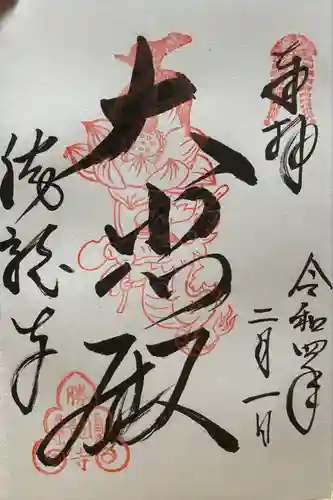 奉拝
令和四年
二月一日
大悲殿
勝龍寺